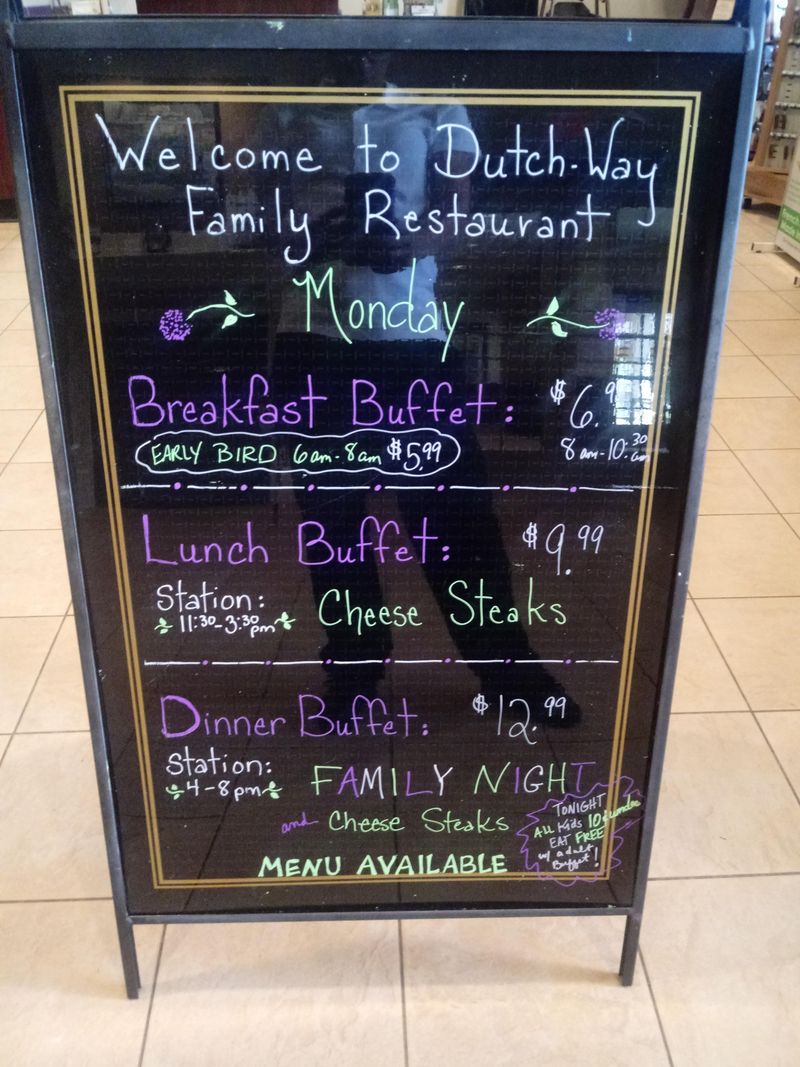 Welcome to Dutch-Way
Family Restaurant
Monday
Breakfast Buffet: $6.9
EARLY BIRD 6am-8am $5.99
8am-10:30am
Lunch Buffet: $9.99
Station: Cheese Steaks
11:30-3:30pm
Dinner Buffet: $12.99
Station: FAMILY NIGHT
4-8pm
and Cheese Steaks
TONIGHT
ALL Kids 10 & under
EAT FREE
w/ adult
Buffet!
MENU AVAILABLE